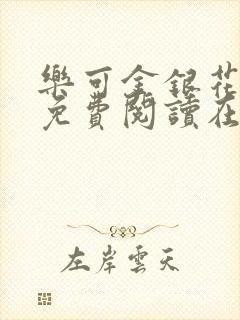 樂可金銀花
免費閱讀在
左岸雲天